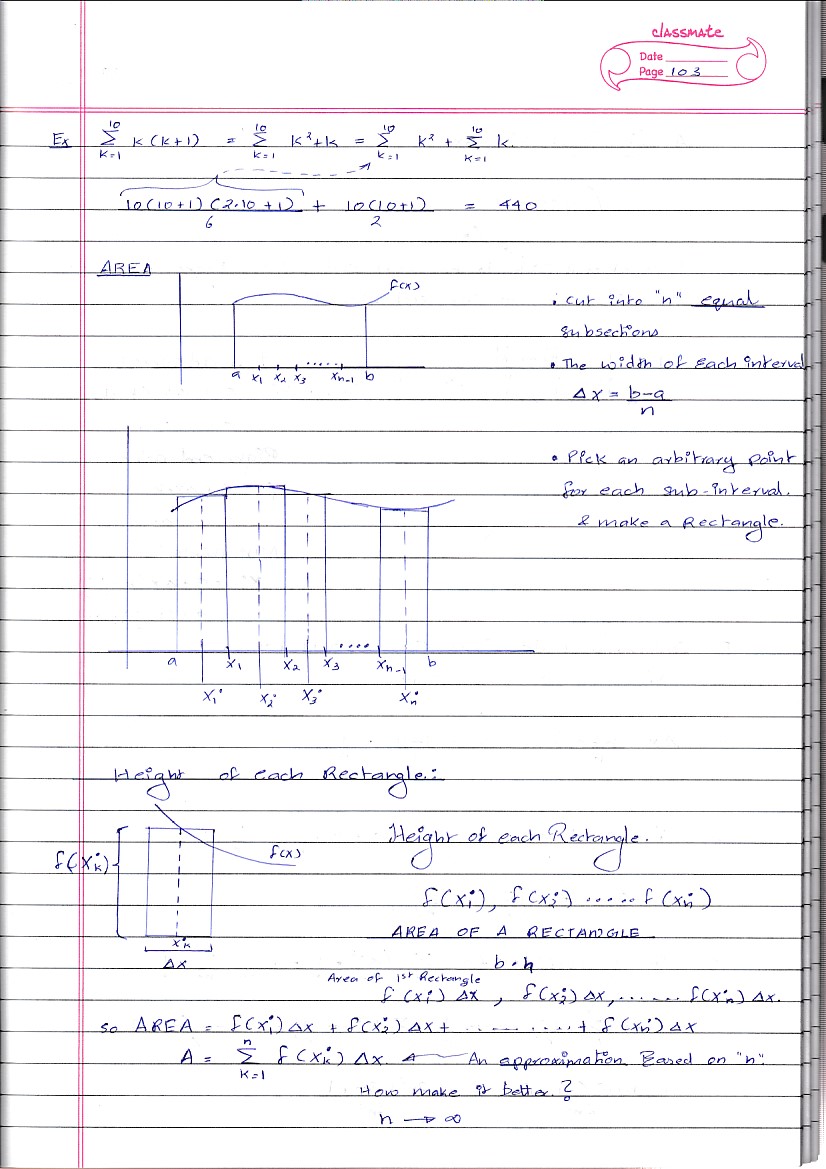 classmate
Date
Page 103
Ex 10 Σ k=1 k(k+1) = 10 Σ k=1 k²+k = 10 Σ k=1 k² + 10 Σ k=1 k.
10(10+1)(2·10+1)/6 + 10(10+1)/2 = 440
AREA
f(x)
a x₁ x₂ x₃ ...... xₙ₋₁ b
• Cut into "n" equal
subsections
• The width of each interval
Δx = b-a/n
• Pick an arbitrary point
for each sub-interval.
& make a Rectangle.
....
a x₁ x₂ x₃ xₙ₋₁ b
x₁• x₂• x₃• xₙ•
Height of each Rectangle:
f(xₖ•)
f(x)
xₖ•
Δx
Height of each Rectangle.
f(x₁•), f(x₂•) ..... f(xₙ•)
AREA OF A RECTANGLE
b·h
Area of 1st Rectangle
f(x₁•) Δx, f(x₂•) Δx, ...... f(xₙ•) Δx.
so AREA = f(x₁•) Δx + f(x₂•) Δx + ........... + f(xₙ•) Δx
A = n Σ k=1 f(xₖ•) Δx. ← An approximation Based on "n".
How make it better?
n → ∞